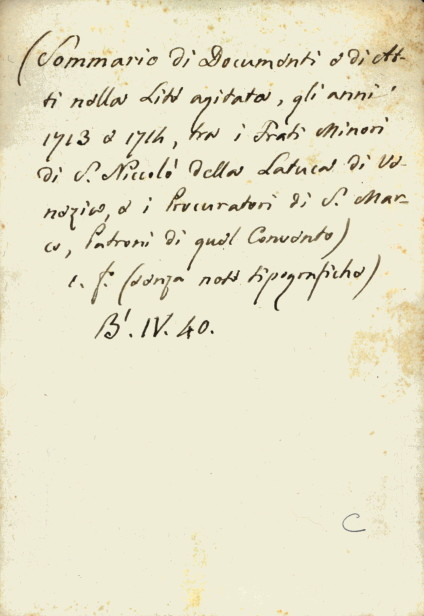 (Sommario di Documenti e di At-
ti nella Lite agitata, gli anni
1713 e 1714, tra i Frati Minori
di S. Niccolò della Latuca di Ve-
nezia, e i Procuratori di S. Mar-
co, Patroni di quel Convento)
c. f. (senza note tipografiche)
B'. IV. 40.
C